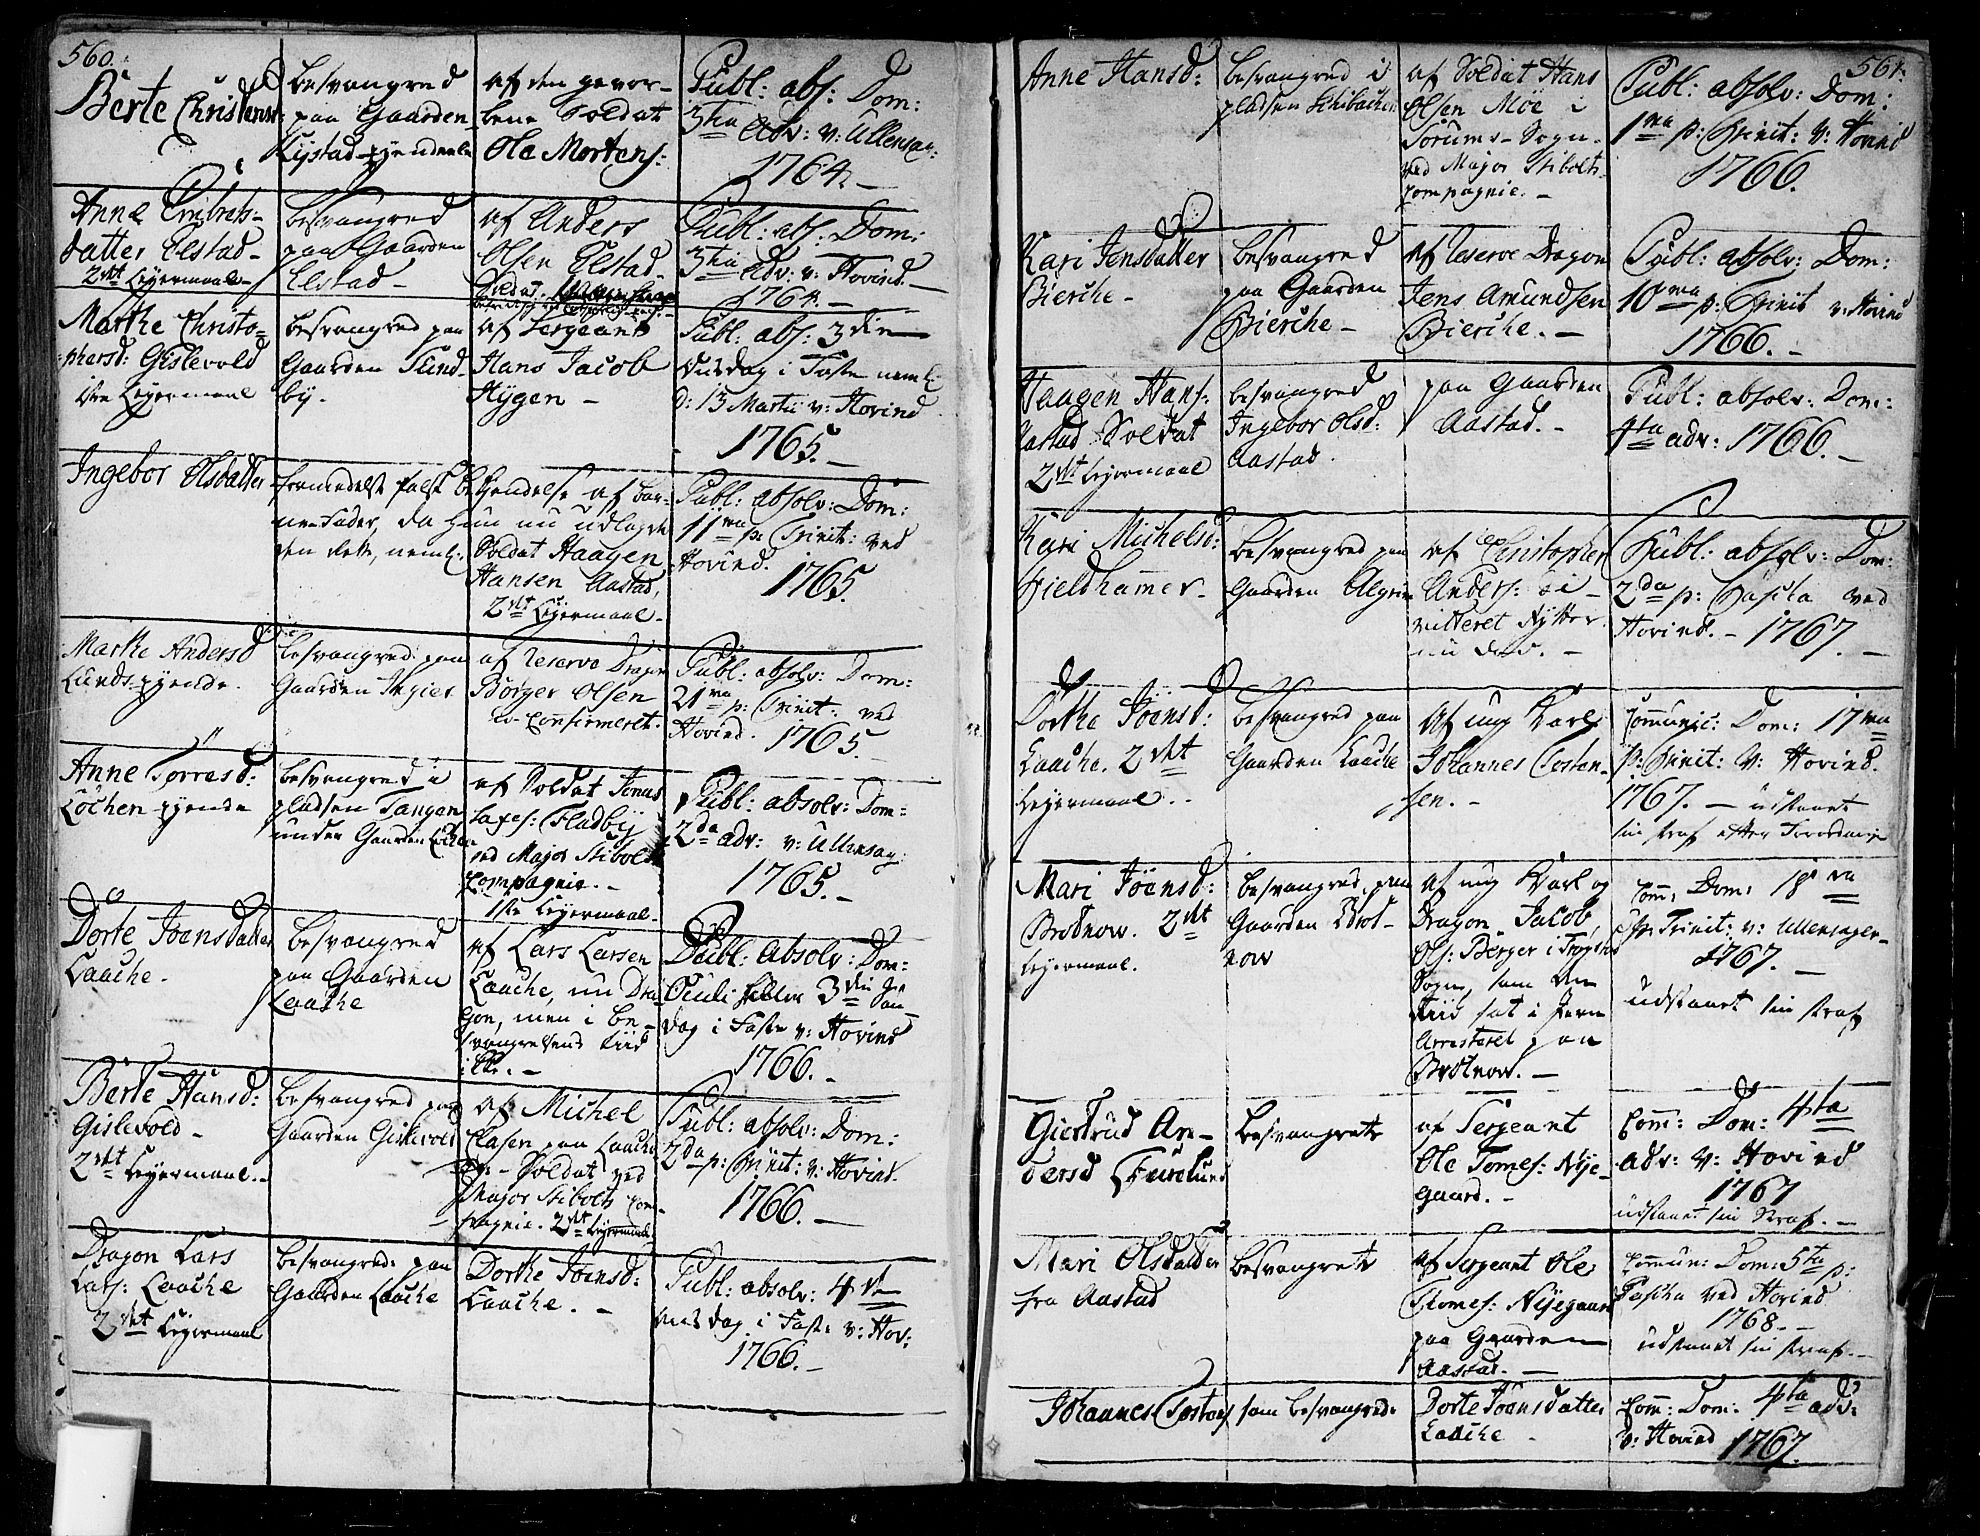 560.
Berte Christensd:
besvangred
paa Gaarden
Kystad-ejendeele
af den gevor-
bene Soldat
Ole Mortens:
Publ: abs: Dom:
3tia Adv: v: Ullensag:
1764.-
Anne Embrets-
datter Elstad-
2det Leyermaal-
besvangred
paa Gaarden
Elstad-
af Anders
Olsen Elstad-
Soldat.
Publ: abs: Dom:
3tia Adv: v: Hovind.-
1764.-
Marthe Christo-
phersd: Gislevold
1ste Leyermaal
besvangred paa
Gaarden Sund-
by.
af Sergeant
Hans Jacob
Hygen-
Publ: abs: 3die
Onsdag i Faste neml:
d: 13 Martii v: Hovind
1765.-
Ingebor Olsdatter
formedelst falsk bekjendelse af bar-
ne-Fader, da hun nu udlagde
den rette, neml:
Soldat Haagen
Hansen Aastad,
2det Leyermaal.
Publ: absolv: Dom:
11ma p: Trinit: ved
Hovind.
1765.
Marthe Andersd
Lunds-ejende.
besvangred paa
Gaarden Ingier
af reserve Dragon
Börger Olsen
u-Confirmeret.
Publ: absolv: Dom:
21ma p: Trinit: ved
Hovind. 1765
Anne Torresd:
Löchen-ejende
besvangred i
pladsen Tangen
under Gaarden Löchen
af Soldat Jonas
Lases: Fladbÿ
ved Major Stibolts
Compagnie.-
1ste Leyermaal-
Publ: absolv: Dom:
2da adv: v: Ullensag:
1765.-
Dorte Joensdatter
Laache.
besvangred
paa Gaarden
Laache
af Lars Larsen
Laache, nu Dra-
gon, men i be-
svangrelsens tiid
ikke.-
Publ: Absolv: Dom:
Oculi eller 3die Søn-
dag i Faste v: Hovind
1766.-
Berte Hansd:
Gislevold-
2det Leyermaal.-
besvangred paa
Gaarden Gislevold
af Michel
Clasen paa Laache
Soldat ved
Major Stibolts Com-
pagnie. 2det Leyermaal
Publ: absolv: Dom:
2da p: Trinit: v: Hovind.
1766.-
Dragon Lars
Lars: Laache
2det Leyermaal
besvangred: paa
Gaarden Laache
Dorthe Joensd:
Laache.-
Publ: absolv: 4de
Onsdag i Faste v: Hov:
1766.-
561.
Anne Hansd:
besvangred i
pladsen Schibachen
af Soldat Hans
Olsen Möe i
Sörums-Sogn-
ved Major Stibolts
Compagnie.-
Publ: absolv: Dom:
1ma p: Trinit: v: Hovind
1766.
Kari Jensdatter
Bierche-
besvangred
paa Gaarden
Bierche-
af reserve Dragon
Jens Amundsen
Bierche.-
Publ: absolv: Dom:
10ma p: Trinit v: Hovind
1766.-
Haagen Hans:
Aastad Soldat
2det Leyermaal
besvangred
Ingebor Olsd:
Aastad.
paa Gaarden
Aastad.-
Publ: absolv: Dom:
4ta adv: 1766.-
Kari Michelsd:
Fieldhamer-
besvangred paa
Gaarden Algrim
af Christopher
Anders:
mitteret Rytter
nu død.-
Publ: absolv: Dom:
2da p: Pascha ved
Hovind.- 1767.-
Dorthe Jöensd:
Laache. 2det
Leyermaal.
besvangred paa
Gaarden Laache
af ung Karl
Johannes Torsten-
sen.-
Communic: Dom: 17ma
p: Trinit: v: Hovind.
1767.- udstaaet
sin straf efter Forordning
Mari Jöensd:
Brotnow. 2det
Leyermaal.
besvangred paa
Gaarden Brot-
now
af ung Karl og
Dragon Jacob
Ols: Berger i Trygstad
Sogn, som den
tiid sat i Jern
Arresteret paa
Brotnow.-
Com: Dom: 18va
p: Trinit: v: Ullensager-
1767.-
udstaaet sin straf
Giertrud An-
dersd Furelund
besvangret
af Sergeant
Ole Tomes: Nÿe-
gaard.-
Com: Dom: 4ta
adv: v: Hovind
1767
udstaaet sin Straf.-
Mari Olsdatter
fra Aastad
besvangret
af Sergeant Ole
Thomes: Nÿegaard
paa Gaarden
Aastad.-
Commun: Dom: 5ta p:
Pascha ved Hovind
1768.-
udstaaet sin straf.-
Johannes Torstens
som besvangred:
Dorte Jöensdatter
Laache-
Com: Dom: 4ta adv:
v: Hovind 1767.